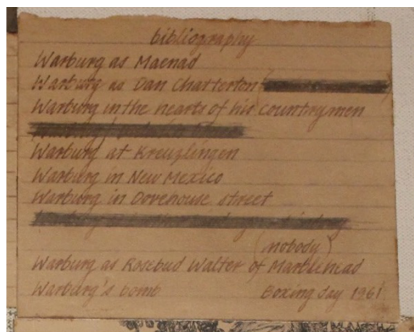 bibliography
Warburg as Maenad
Warburg as Dan Chatterton
Warburg in the hearts of his countrymen
Warburg at Kreuzlingen
Warburg in New Mexico
Warburg in Dovehouse street
(nobody)
Warburg as Rosebud Walter of Marblehead
Warburg's bomb Boxing day 1961